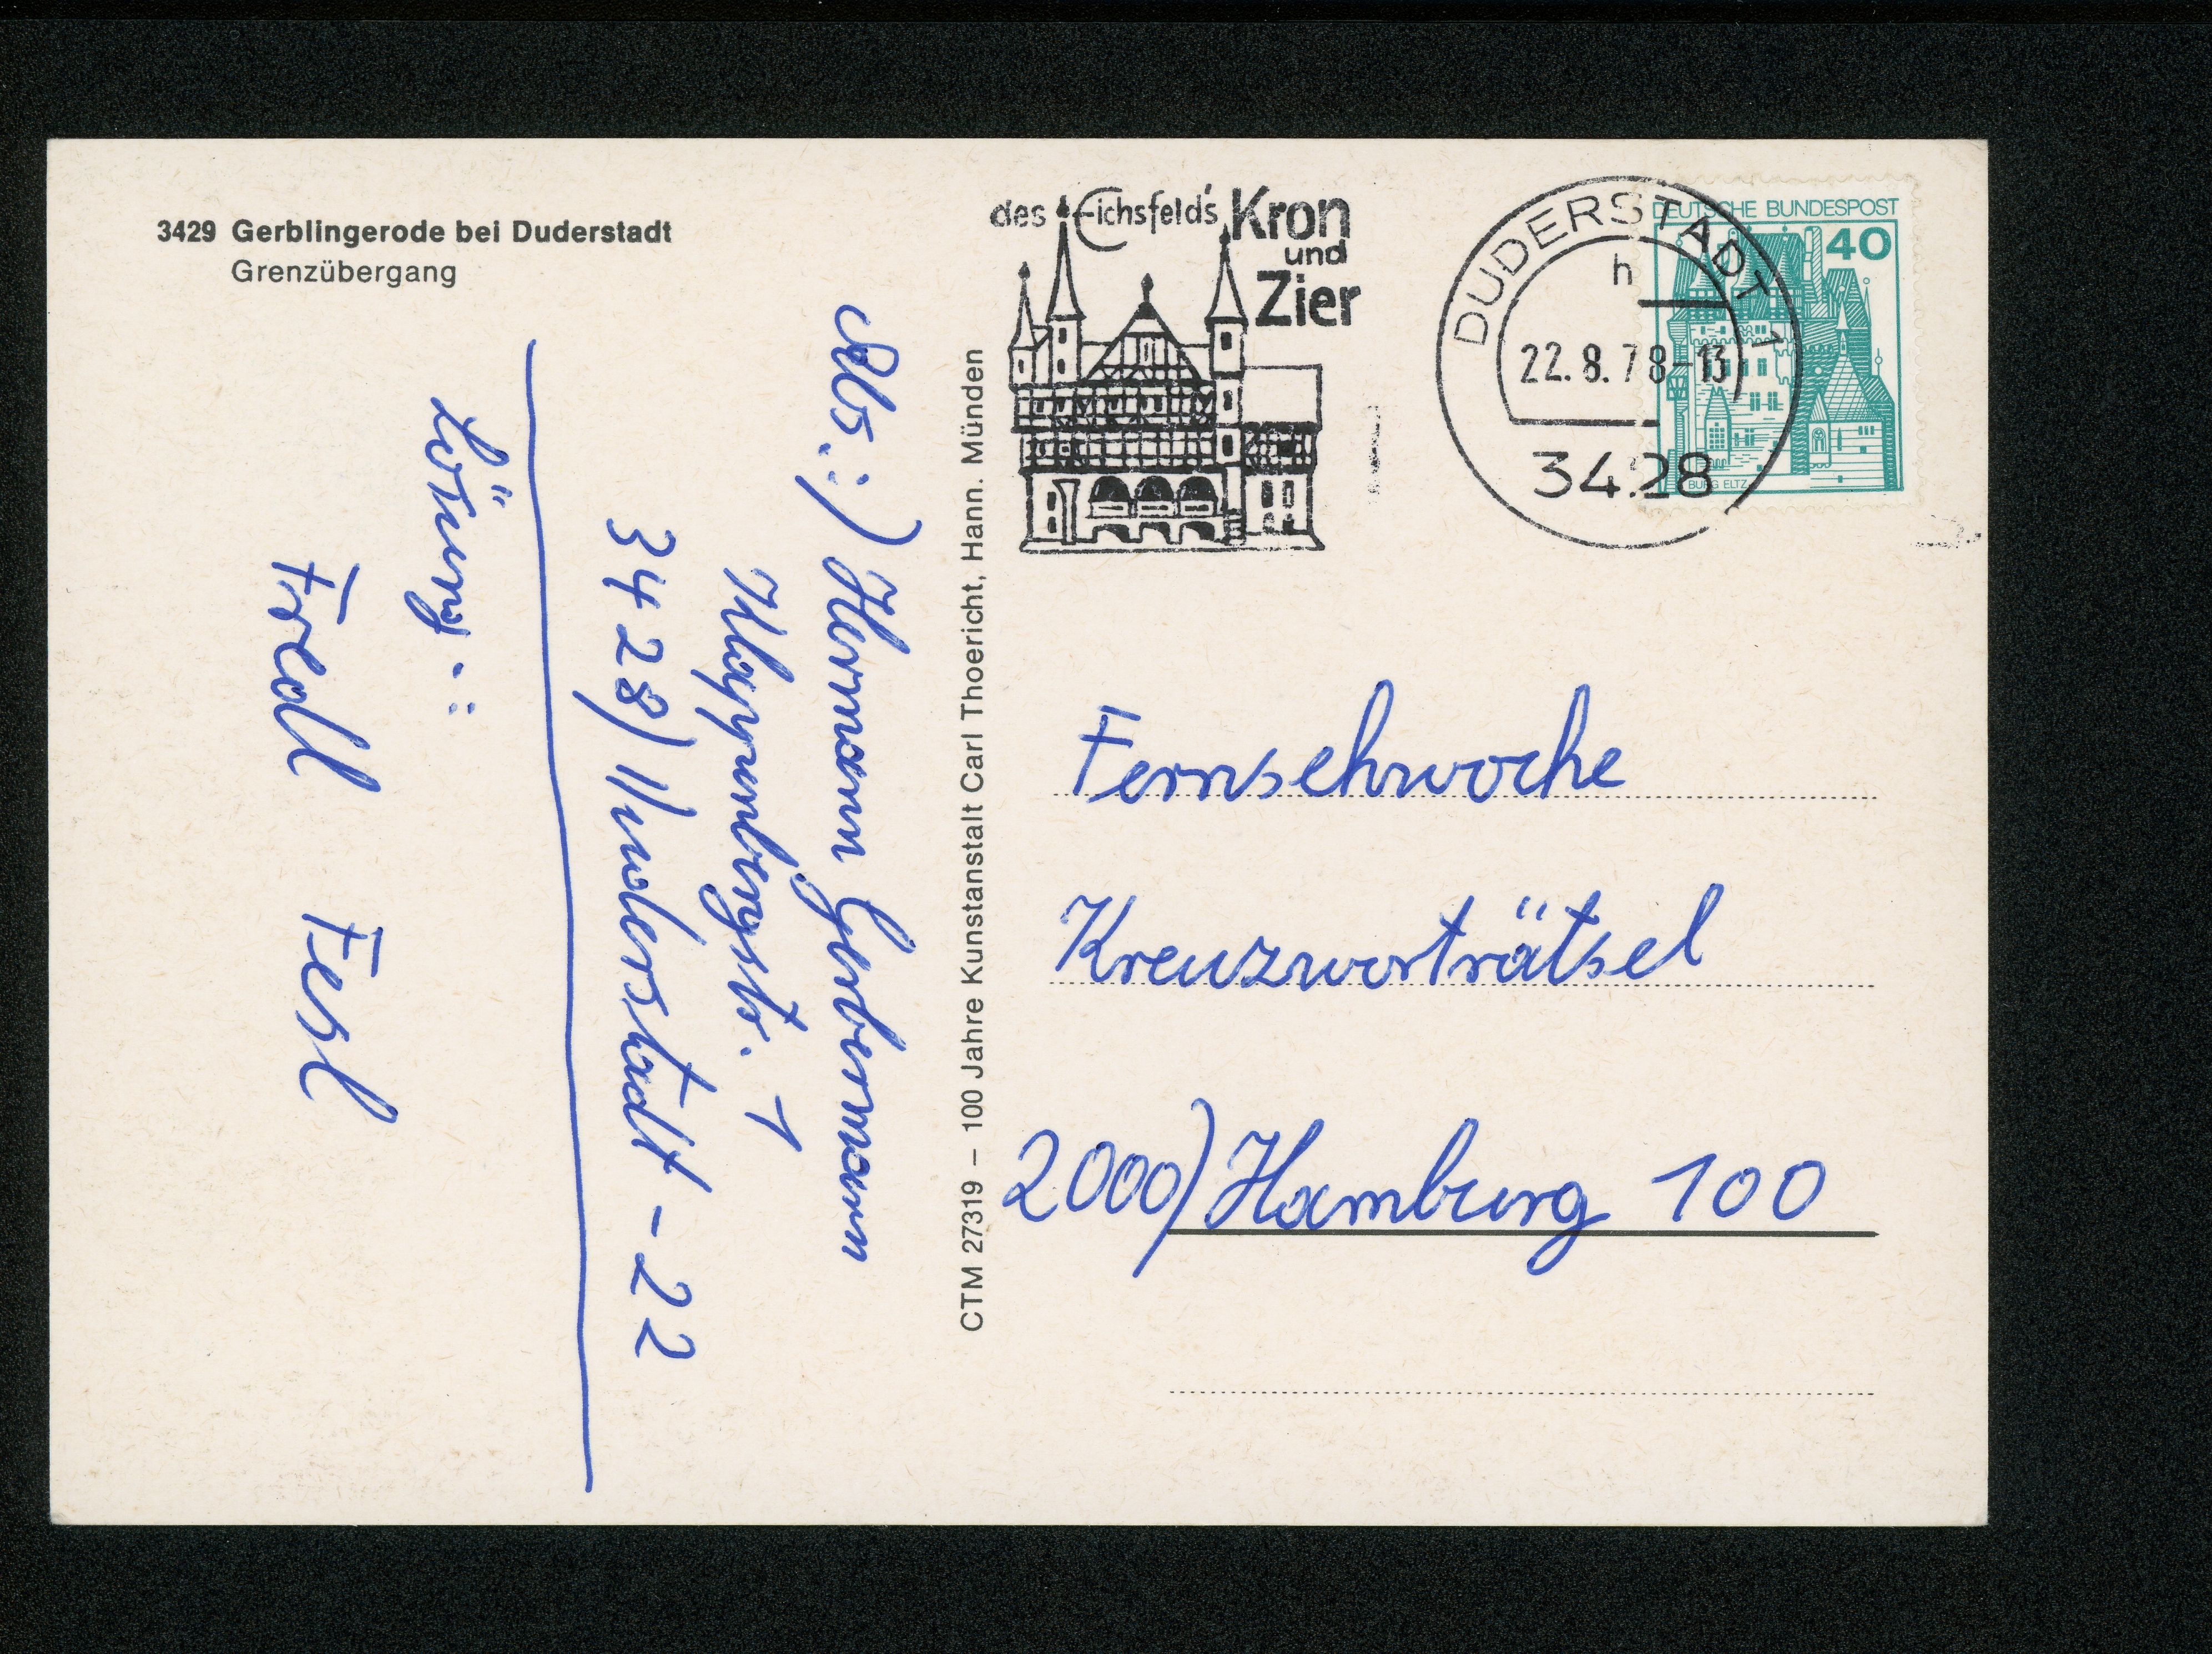 3429 Gerblingerode bei Duderstadt
Grenzübergang
des Eichsfeld's Kron
und
Zier
DUDERSTADT 1
h
22.8.78-13
3428
DEUTSCHE BUNDESPOST
40
BURG ELTZ
Abs.:) Hermann Gerbermann
3428) Duderstadt - 22
Lösung.:
Fredl Fesl
CTM 27319 – 100 Jahre Kunstanstalt Carl Thoericht, Hann. Münden
Fernsehwoche
Kreuzworträtsel
2000) Hamburg 100